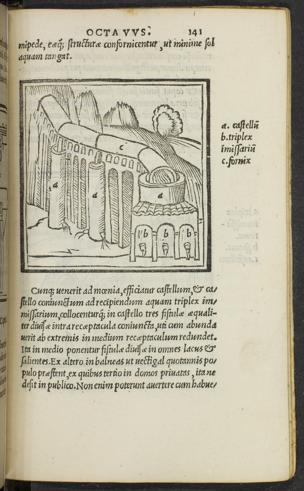 OCTAVVS. 141
mipede, eaq; structuræ confornicentur, ut minime sol
aquam tangat.
a. castellũ
b. triplex
imissariũ
c. fornix
c
d
d
a
b
b
b
Cunq; uenerit ad mœnia, efficiatur castellum, & ca-
stello coniunctum ad recipiendum aquam triplex im-
missarium, collocenturq; in castello tres fistulæ æquali-
ter diuisæ intra receptacula coniuncta, uti cum abunda
uerit ab extremis in medium receptaculum redundet.
Ita in medio ponentur fistulæ diuisæ in omnes lacus &
salientes. Ex altero in balneas ut uectigal quotannis po-
pulo præstent, ex quibus tertio in domos priuatas, ita ne
desit in publico. Non enim poterunt auertere cum habue/